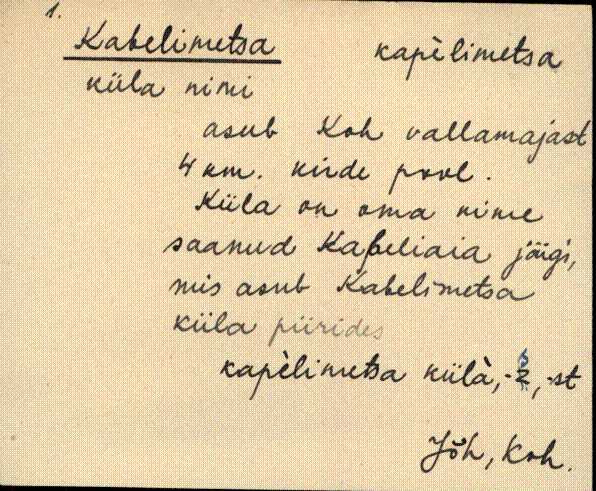 1.
Kabelimetsa kapèlimetsa
küla nimi
asub Koh vallamajast
4 km. kirde pool.
Küla on oma nime
saanud Kabeliaia järgi,
mis asub Kabelimetsa
küla piirides
kapèlimetsa külà, -s, -st
Jõh, Koh.